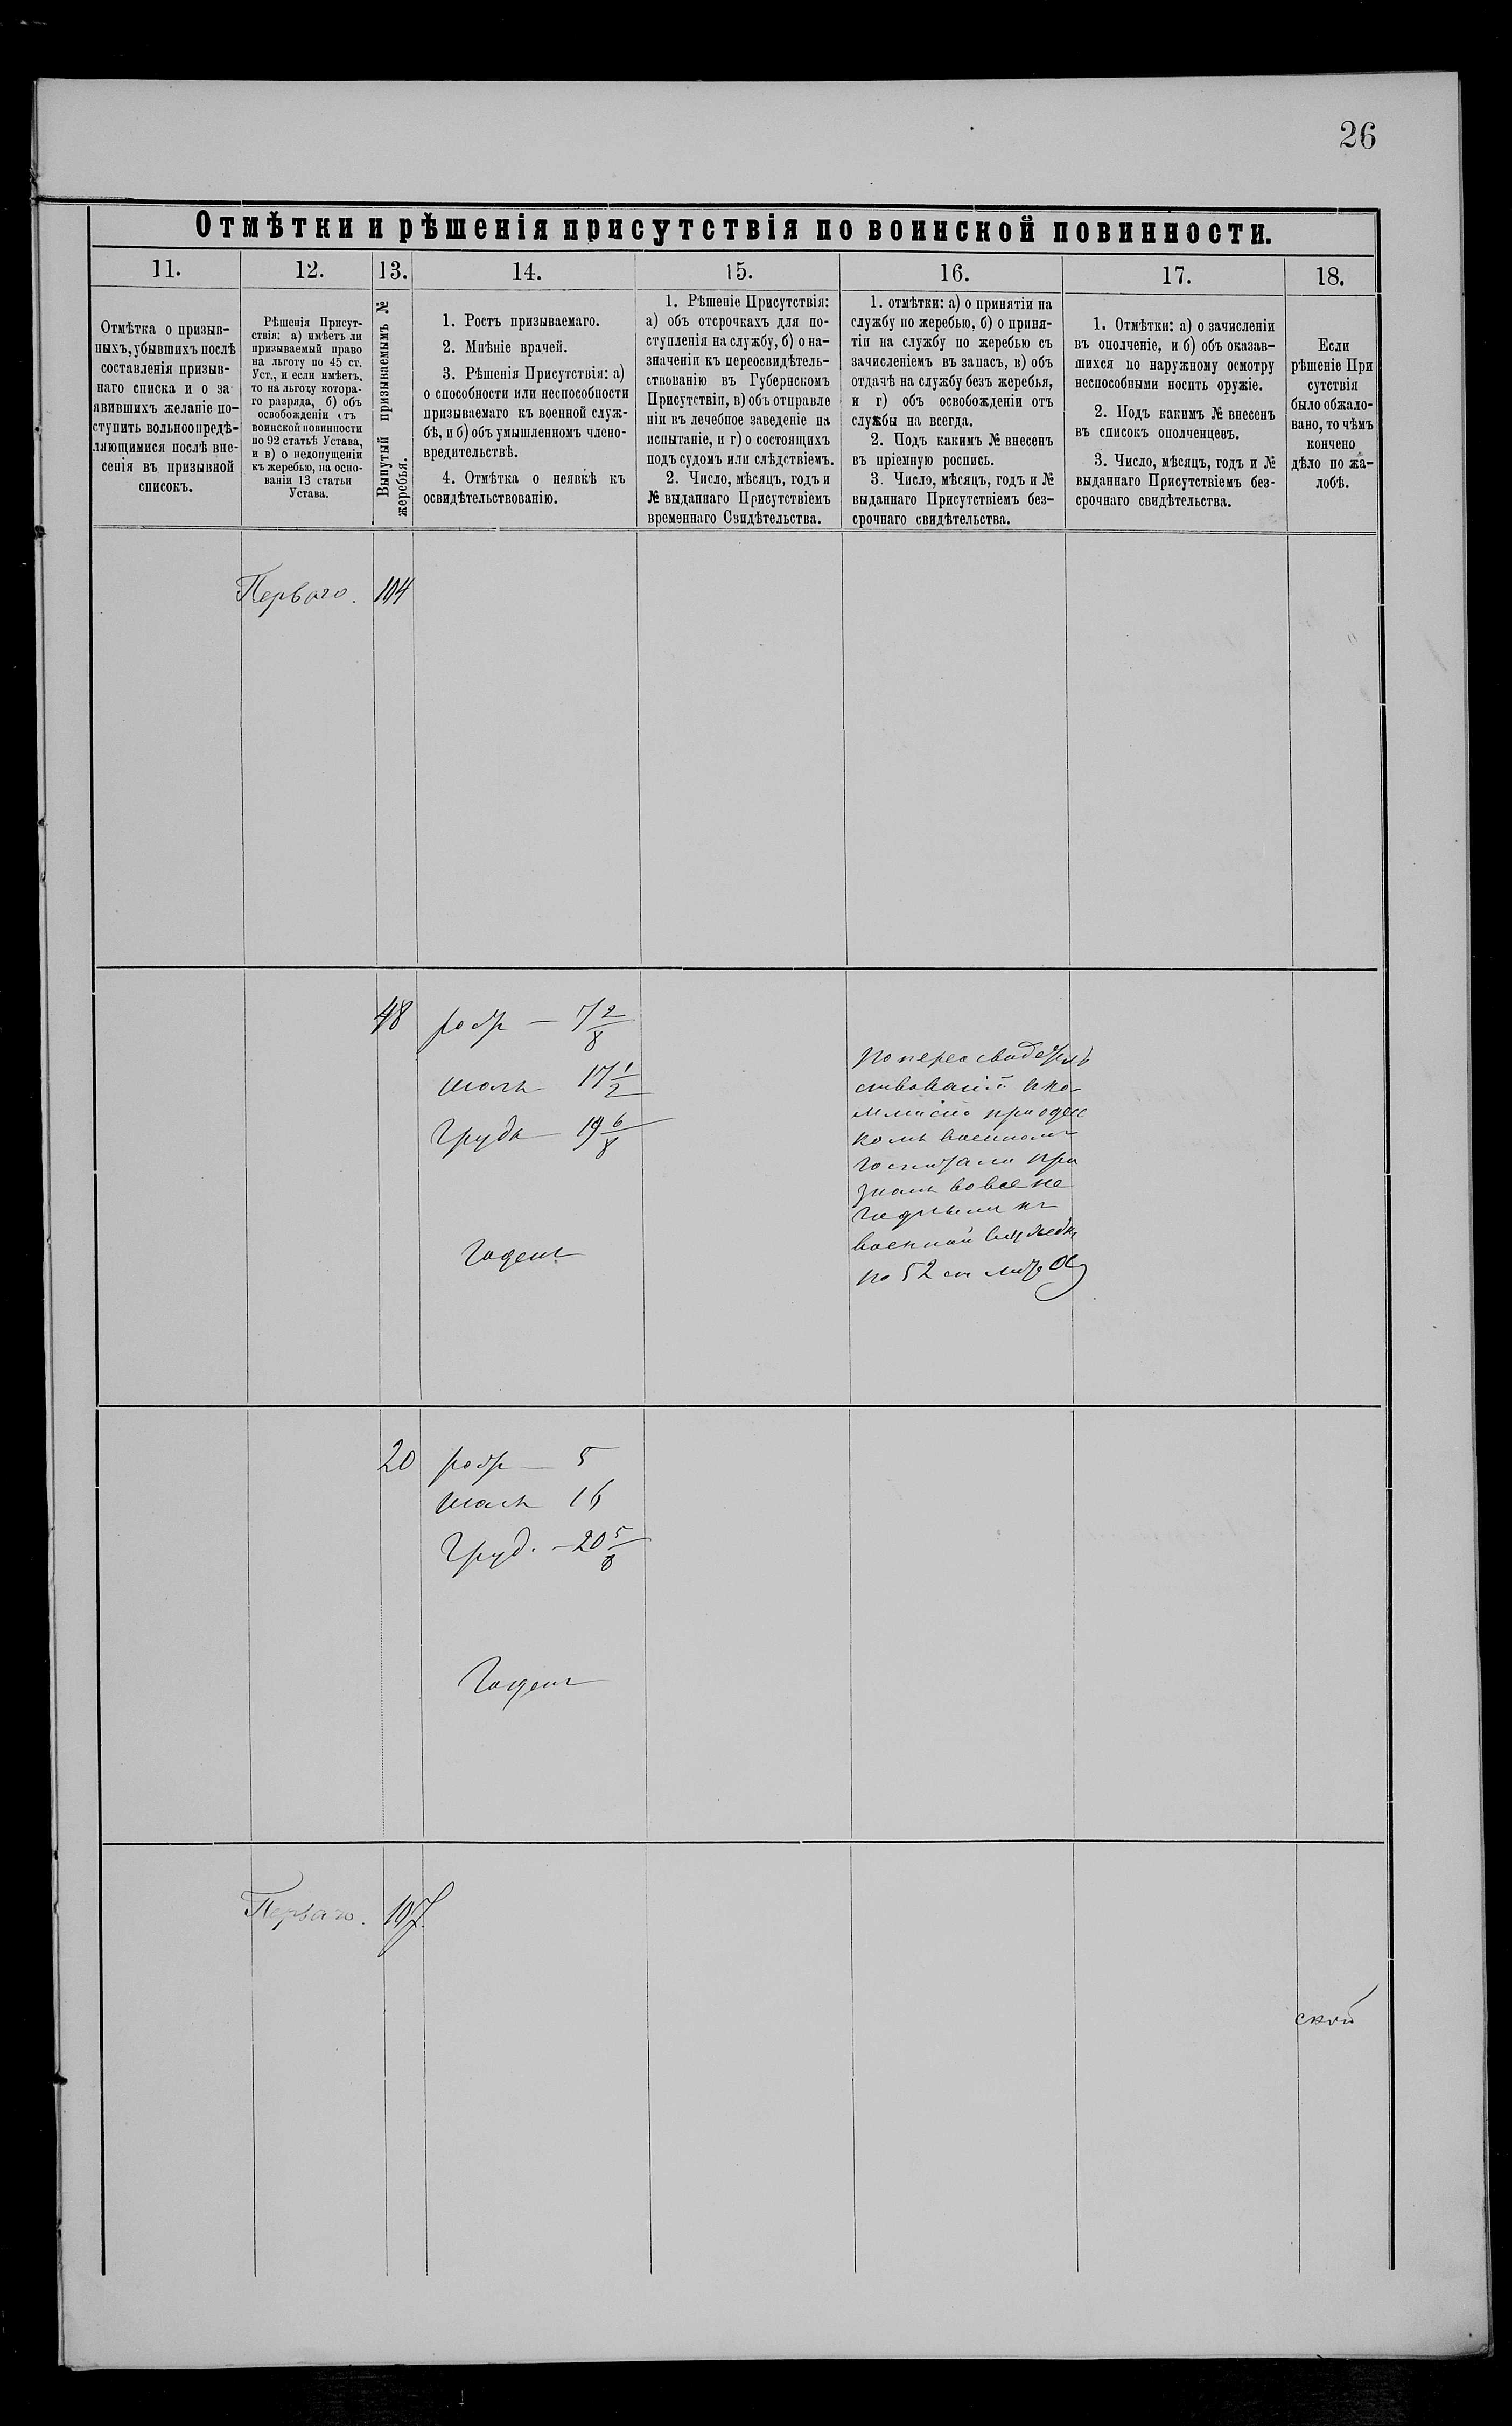 26
Отмѣтки и рѣшенія присутствія по воинской повинности.
11.
12.
13.
14.
15.
16.
17.
18.
Отмѣтка о призыв-
ныхъ, убывшихъ послѣ
составленія призыв-
наго списка и о за
явившихъ желаніе по-
ступить вольноопредѣ-
ляющимися послѣ вне-
сенія въ призывной
списокъ.
Рѣшенія Присут-
ствія: а) имѣетъ ли
призываемый право
на льготу по 45 ст.
Уст., и если имѣетъ,
то на льготу котора-
го разряда, б) объ
освобожденіи отъ
воинской повинности
по 92 статьѣ Устава,
и в) о недопущеніи
къ жеребью, на осно-
ваніи 13 статьи
Устава.
Вынутый призываемымъ №
жеребья.
1. Ростъ призываемаго.
2. Мнѣніе врачей.
3. Рѣшенія Присутствія: а)
о способности или неспособности
призываемаго къ военной служ-
бѣ, и б) объ умышленномъ члено-
вредительствѣ.
4. Отмѣтка о неявкѣ къ
освидѣтельствованію.
1. Рѣшеніе Присутствія:
а) объ отсрочкахъ для по-
ступленія на службу, б) о на-
значеніи къ переосвидѣтель-
ствованію въ Губернскомъ
Присутствіи, в) объ отправле
ніи въ лечебное заведеніе на
испытаніе, и г) о состоящихъ
подъ судомъ или слѣдствіемъ.
2. Число, мѣсяцъ, годъ и
№ выданнаго Присутствіемъ
временнаго Свидѣтельства.
1. отмѣтки: а) о принятіи на
службу по жеребью, б) о приня-
тіи на службу по жеребью съ
зачисленіемъ въ запасъ, в) объ
отдачѣ на службу безъ жеребья,
и г) объ освобожденіи отъ
службы на всегда.
2. Подъ какимъ № внесенъ
въ пріемную роспись.
3. Число, мѣсяцъ, годъ и №
выданнаго Присутствіемъ без-
срочнаго свидѣтельства.
1. Отмѣтки: а) о зачисленіи
въ ополченіе, и б) объ оказав-
шихся по наружному осмотру
неспособными носить оружіе.
2. Подъ какимъ № внесенъ
въ списокъ ополченцевъ.
3. Число, мѣсяцъ, годъ и №
выданнаго Присутствіемъ без-
срочнаго свидѣтельства.
Если
рѣшеніе При
сутствія
было обжало-
вано, то чѣмъ
кончено
дѣло по жа-
лобѣ.
Перваго. 104
48 рост — 7 2/8
17 1/2
Грудь 19 6/8
Годенъ
по переосвидетель
ствованіи
при одес
комъ военномъ
госпитали при
знанъ вовсе не
годнымъ къ
военной службѣ
по 52 ст литр
20 рост — 5
16
Груд. — 20 5/8
Годенъ
Перваго. 107.
ской